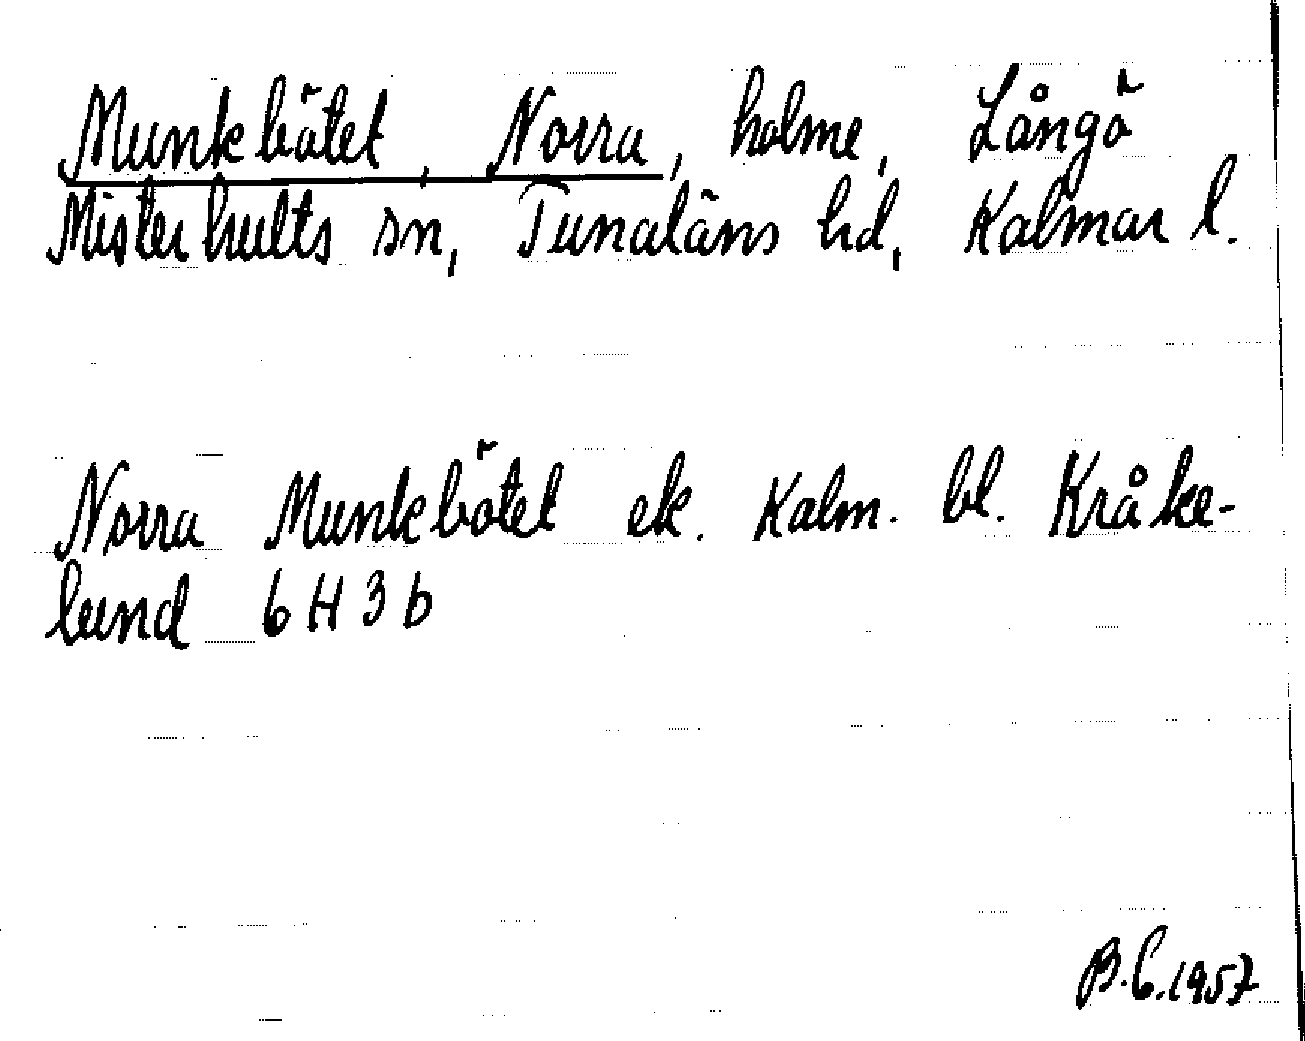 Munkbötet, Norra, holme, Långö
Misterhults sn, Tunaläns hd, Kalmar l.
Norra Munkbötet ek. Kalm. bl. Kråke-
lund 6 H 3 b
B.C. 1957